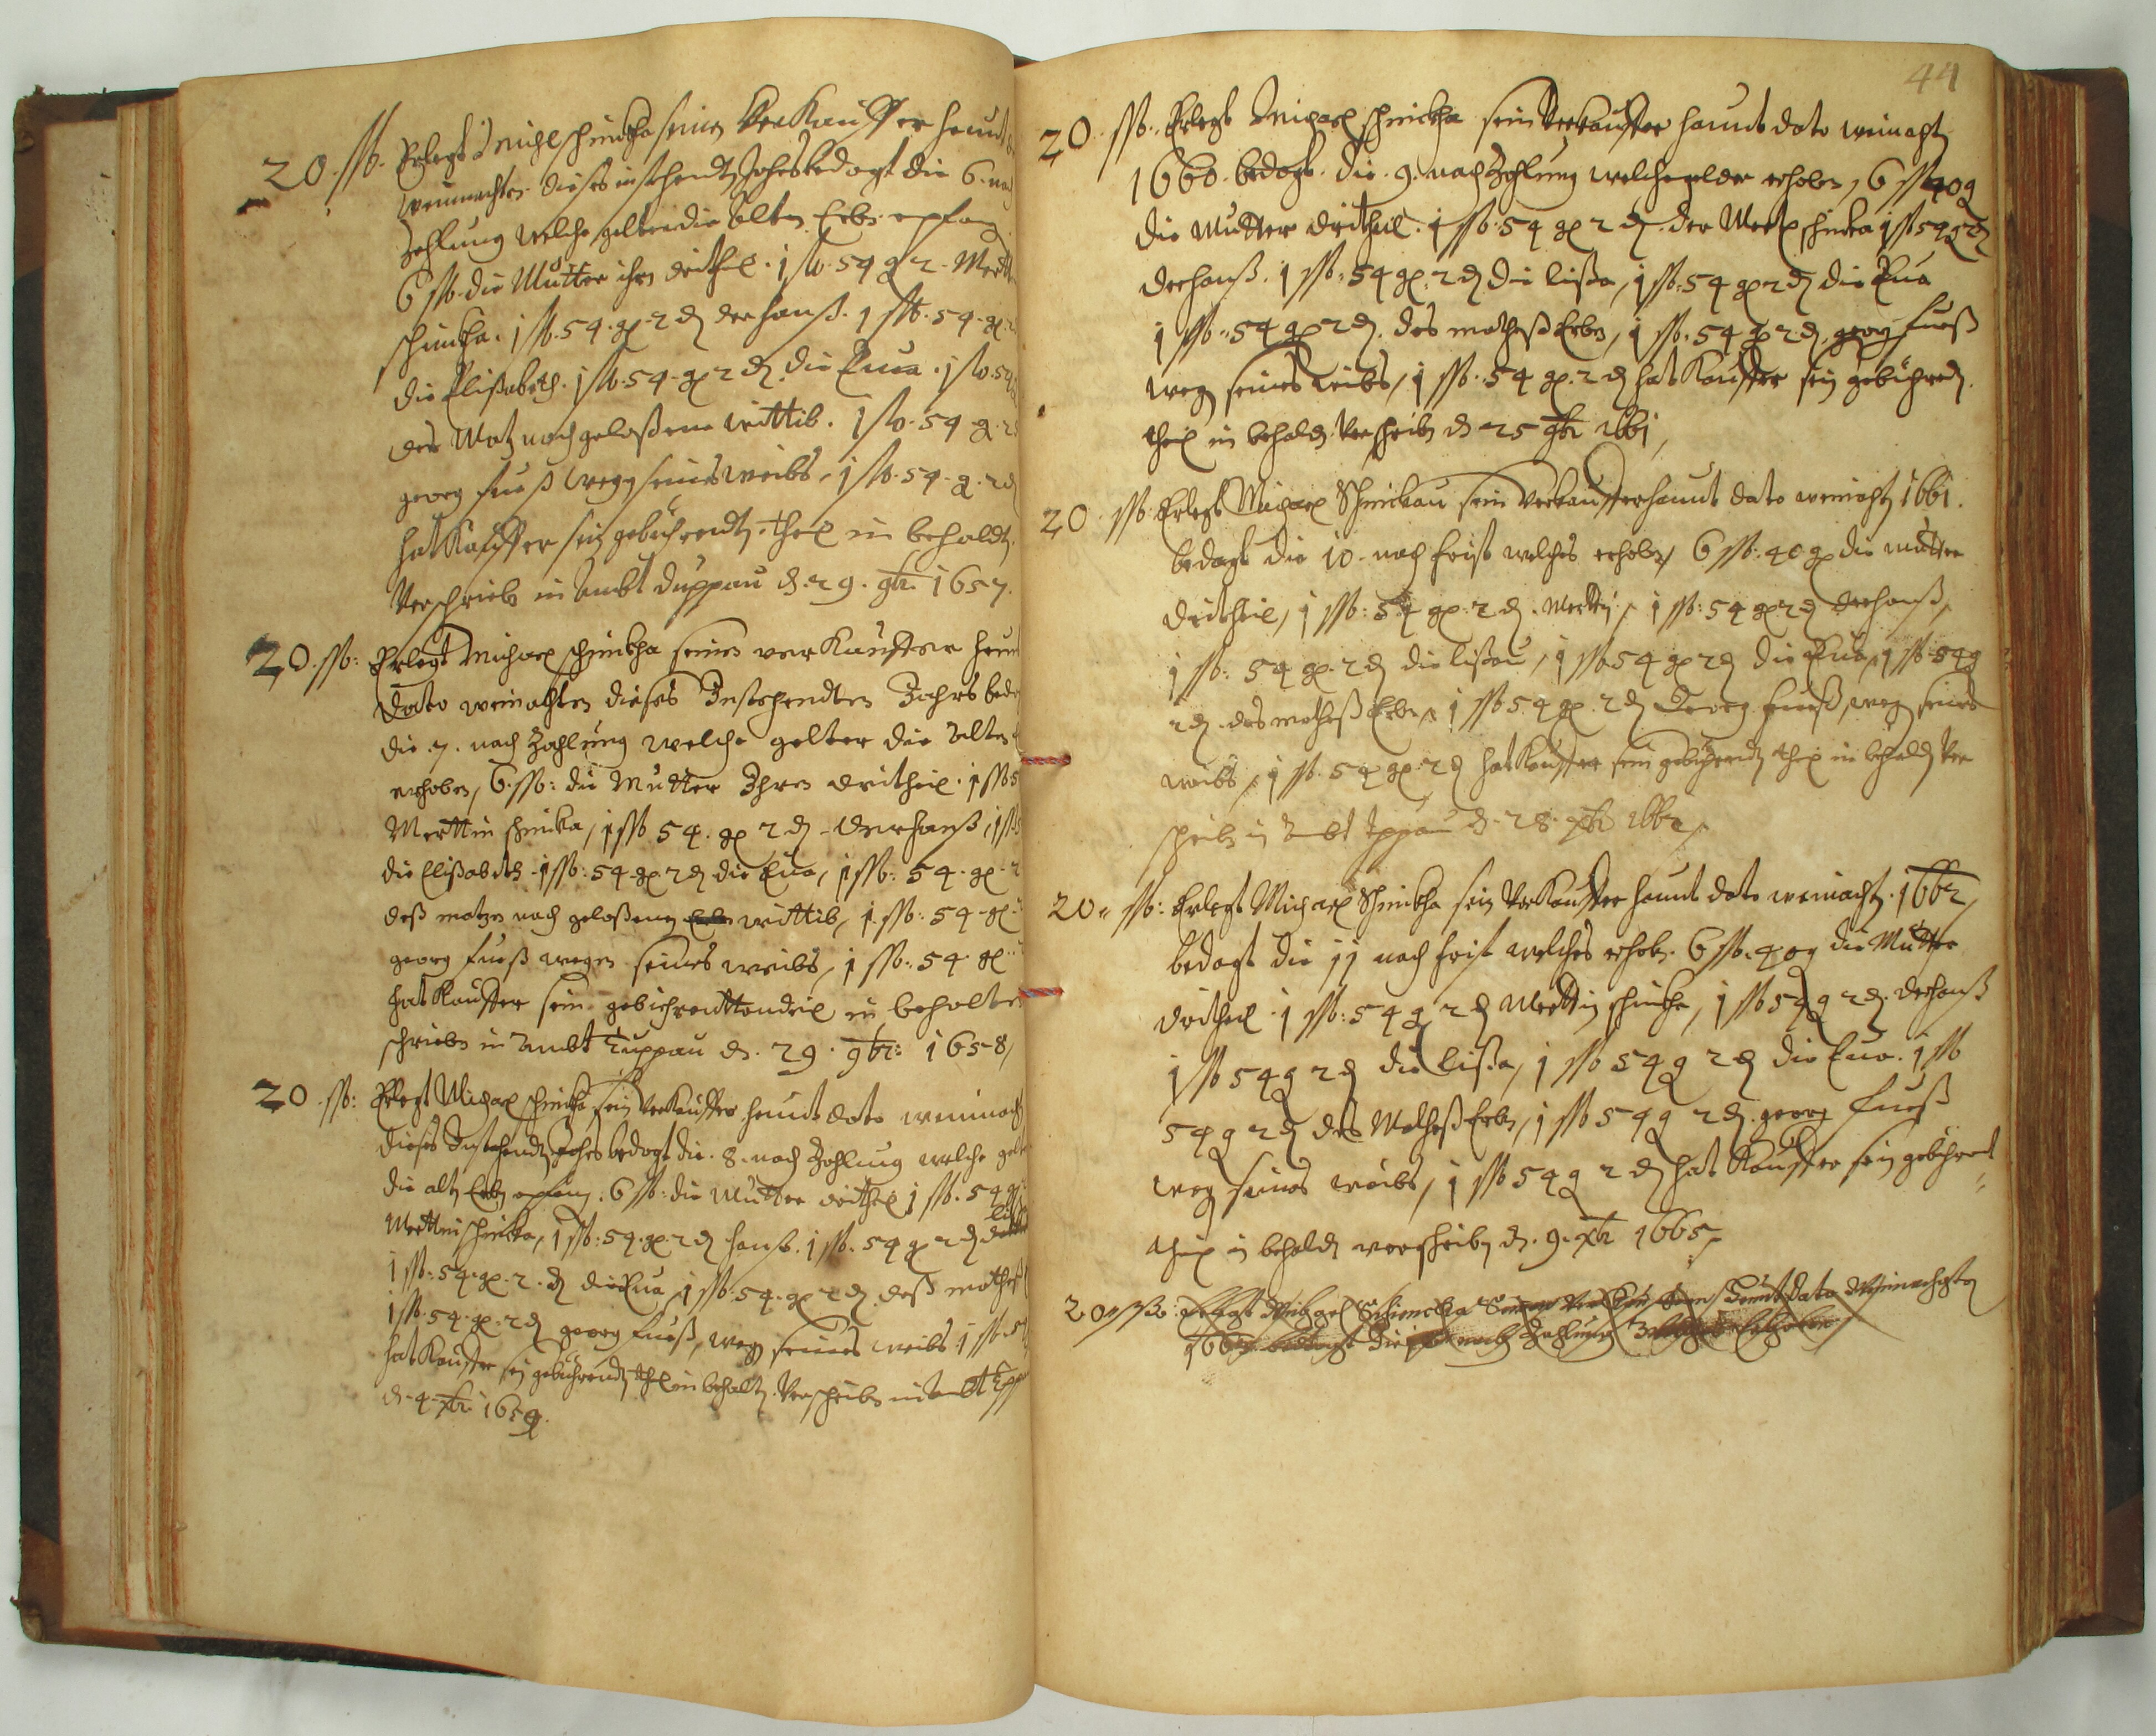 20. ßo. Erlegt Michl schinkha seinen Verkauffer heund
Weinnachten dieses instehendt Jahrs bedagt die 6. nach
Zahlung welche gelter die alten Erben epfang
6 ßo. die Mutter ihrn dritheil. 1 ßo. 54 g 2. Mertt
schinkha. 1 ßo. 54. gl. 2 d der hanß. 1 ßo. 54. gl.
die Elißabeth. 1 ßo. 54. gl 2 d. die Eua. 1 ßo. 54
des Matz nachgelaßene wittib. 1 ßo. 54 g. 2
georg fueß wegen seines weibs, 1 ßo. 54. g. 2 d
hat Kauffer sein gebührendt. theil in behaldt.
Verschrieben in Ambt Duppau d. 29. 9br. 1657.
20. ßo: Erlegt Michael schinkha seinen verkauffer heund
dato weinachten dieses Instehendten Jahrs beda
die 7. nach Zahlung welche gelter die alten
erhoben, 6. ßo: die Mutter Ihren dritheil. 1 ßo 5
Merttin schinka, 1 ßo 54. gl 2 d. der hanß, 1 ßo
die Elißabeth 1 ßo: 54. gl. 2 d die Eua, 1 ßo: 54. gl. 2
deß matzen nach gelaßenen Erben wittib, 1. ßo: 54. gl.
georg fueß wegen seines weibs, 1 ßo. 54. gl.
hat Kauffer sein gebichrentten deil in behalten
schrieben in Ambt Tuppau d. 29. 9br: 1658,
20. ßo: Erlegt Michael schinkha sein verkauffer heund dato weinnach
dieses Instehendt Jahrs bedagt die. 8. nach Zahlung welche gel
die alten Erben epfang. 6 ßo: die Mutter dritheil 1 ßo. 54 gl
Merttin schinka, 1 ßo: 54. gl. 2 d hanß. 1 ßo. 54 gl 2 d
1 ßo: 54. gl. 2. d die Eua, 1 ßo. 54. gl 2 d. deß matheß
1 ßo. 54. gl. 2 d georg fueß, wegen seines weibs 1 ßo. 54
hat Kauffer sein gebührendt theil in behalt. Verschrieben in Ambt Tupp
d. 4. xbr. 1659.
44
20. ßo. Erlegt Michael schinkha sein verkauffer haundt dato weinacht
1660. bedagt. die. 9. nach Zahlung welche gelder erhoben, 6 ß 40 g
die Mutter dritheil. 1 ßo. 54 gl 2 d. der Mertl schinka 1 ßo 54 g 2 d
der hanß. 1 ßo. 54 gl. 2 d die lißa, 1 ßo. 54 gl 2 d die Eua
1 ßo. 54 gl 2 d. des matheß Erben, 1 ßo. 54 g 2 d. georg fueß
wegen seines weibs, 1 ßo. 54 gl. 2 d hat Kauffer sein gebührendt.
theil in behaldt verschrieben d 25 9br 1661,
20. ßo. Erlegt Michael Schinkau sein verkauffer haundt dato weinacht 1661.
bedagt die 10. nach frist welches erhoben, 6 ßo. 40 gl die mutter
dritheil, 1 ßo: 54 gl. 2 d. Mertti, 1 ßo: 54 gl 2 d der hanß,
1 ßo: 54 gl. 2 d die lißau, 1 ßo 54 gl 2 d die Eua, 1 ßo 54 g
2 d. des matheß Erben, 1 ßo 54 gl. 2 d Georg fueß, wegen seines
weibs, 1 ßo. 54 gl. 2 d hat Kauffer sein gebührendt theil in behaldt Ver
schrieben in Ambt Tppau d. 28. xbr 1662,
20. ßo: Erlegt Michael Schinkha sein Verkauffer haundt dato weinacht. 1662,
bedagt die 11 nach frist welches erhob. 6 ßo. 40 g die Mutter
dritheil. 1 ßo: 54 g 2 d Merttin schinkha, 1 ßo 54 g 2 d. der hanß
1 ßo 54 g 2 d die lißa, 1 ßo 54 g 2 d die Eua. 1 ßo
54 g 2 d des Matheß Erben, 1 ßo 54 g 2 d. georg fueß
wegen seines weibs, 1 ßo 54 g 2 d hat Kauffer sein gebührendt
theil in behaldt verschrieben d. 9. xbr 1665,
20 ßo: Erlegt Michael Schimckha Seinen Verkauffern Heundt Dato Weinachten
166 bedagt die nach Zahlung